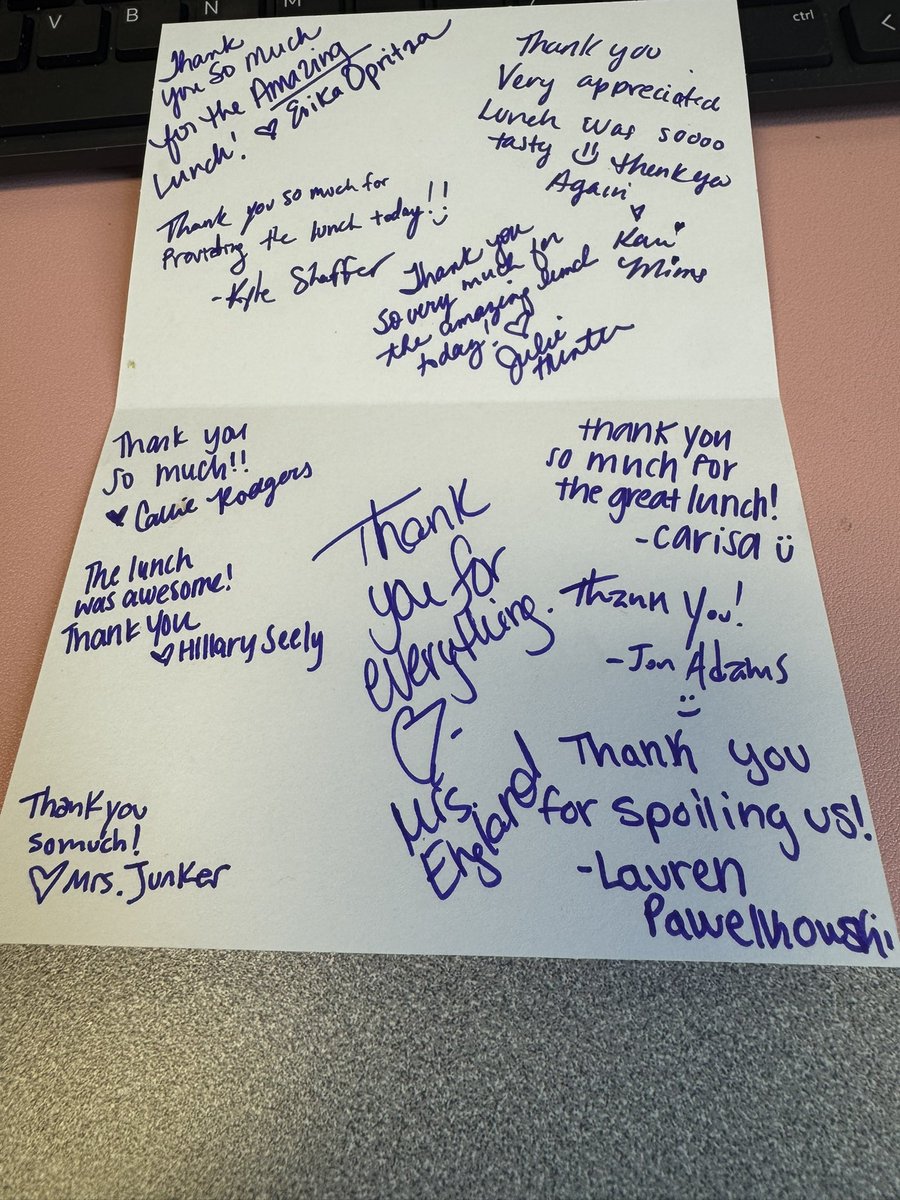 V B N M ctrl <
Thank
you so much
for the Amazing
Lunch! Erika Opritza
Thank you
Very appreciated
Lunch was soooo
tasty thank you
Again
Kari
Mims
Thank you so much for
Providing the lunch today!!
-Kyle Shaffer
Thank you
so very much for
the amazing lunch
today!
Julie
Thank you
so much!!
Callie Rodgers
thank you
so much for
the great lunch!
-Carisa
The lunch
was awesome!
Thank you
Hillary Seely
Thank
you for
everything.
Mrs.
England
Thank you!
-Jon Adams
Thank you
for spoiling us!
-Lauren
Pawelkowski
Thank you
so much!
Mrs. Junker